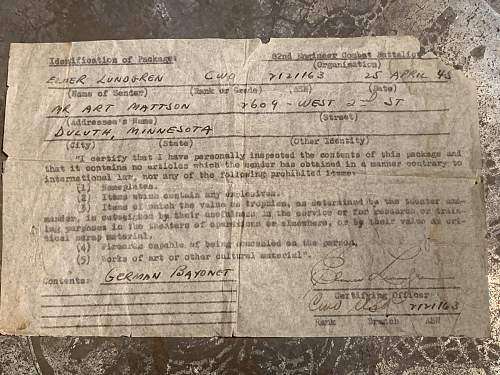 Identification of Package 82nd Engineer Combat Battalion
(Organization)
ELMER LUNDGREN CWO 2121163 25 APRIL 45
(Name of Sender) (Rank or Grade) (ASN) (Date)
MR ART MATTSON 2609 - WEST 2nd ST
(Addressee's Name) (Street)
DULUTH, MINNESOTA
(City) (State) (Other Identity)
"I certify that I have personally inspected the contents of this package and
that it contains no articles which the sender has obtained in a manner contrary to
international law, nor any of the following prohibited items:
(1) Nameplates.
(2) Items which contain any explosives.
(3) Items of which the value as trophies, as determined by the theater com-
mander, is outweighed by their usefulness in the service or for research or train-
ing purposes in the theaters of operations or elsewhere, or by their value as cri-
tical scrap material.
(4) Firearms capable of being concealed on the person.
(5) Works of art or other cultural material".
Contents: GERMAN BAYONET
Elmer Lundgren
Certifying Officer
CWO 2121163
Rank Branch ASN